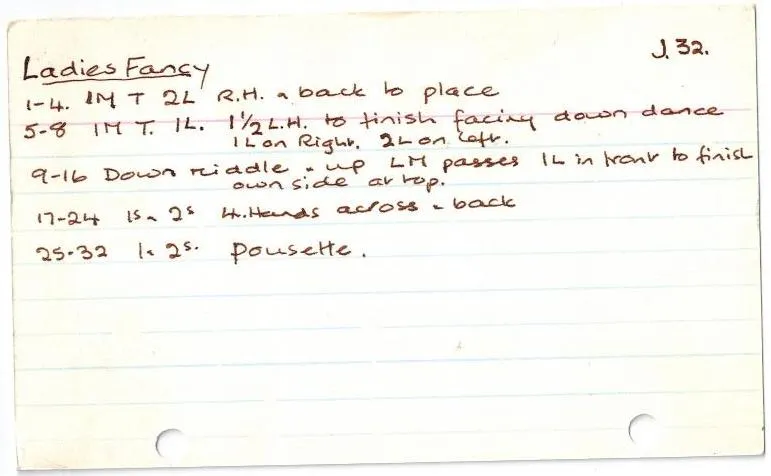 J. 32.
Ladies Fancy
1-4. 1M T 2L R.H. & back to place
5-8 1M T. 1L. 1½ L.H. to finish facing down dance
1L on Right. 2L on Left.
9-16 Down middle & up 1M passes 1L in front to finish
own side at top.
17-24 1s & 2s 4. Hands across & back
25-32 1 & 2s. Pousette.